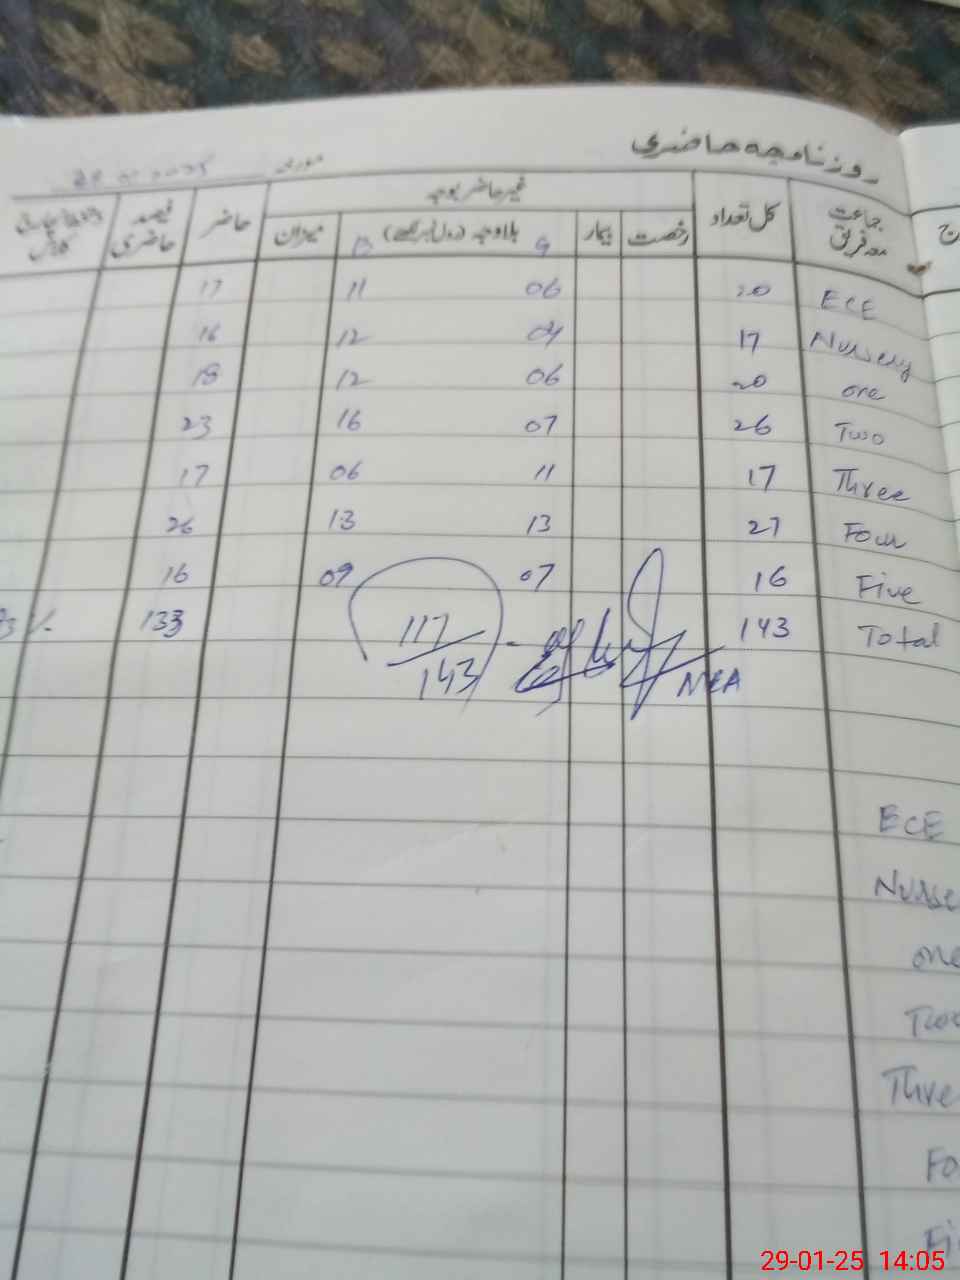 روزنامچہ حاضری
مورخہ
جماعت معہ فریق کل تعداد غیر حاضر بوجہ حاضر فیصد حاضری
رخصت بیمار بلاوجہ (رول نمبر لکھیے) میزان
G B
ECE 20 06 11 17
Nursery 17 04 12 16
one 20 06 12 18
Two 26 07 16 23
Three 17 11 06 17
Four 27 13 13 26
Five 16 07 09 16
Total 143 133
117
143
MEA
ECE
Nurse
one
Two
Three
Fo
Fi
29-01-25 14:05